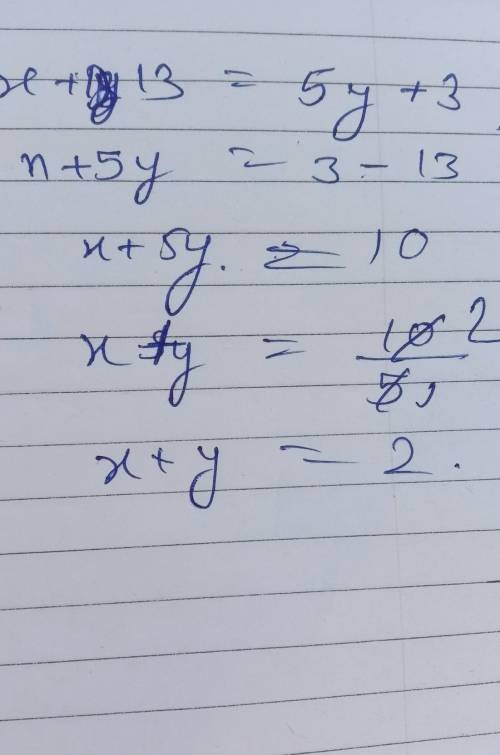 x + 13 = 5y + 3
x + 5y = 3 - 13
x + 5y. = 10
x + y = 10/5 2 1
x + y = 2.